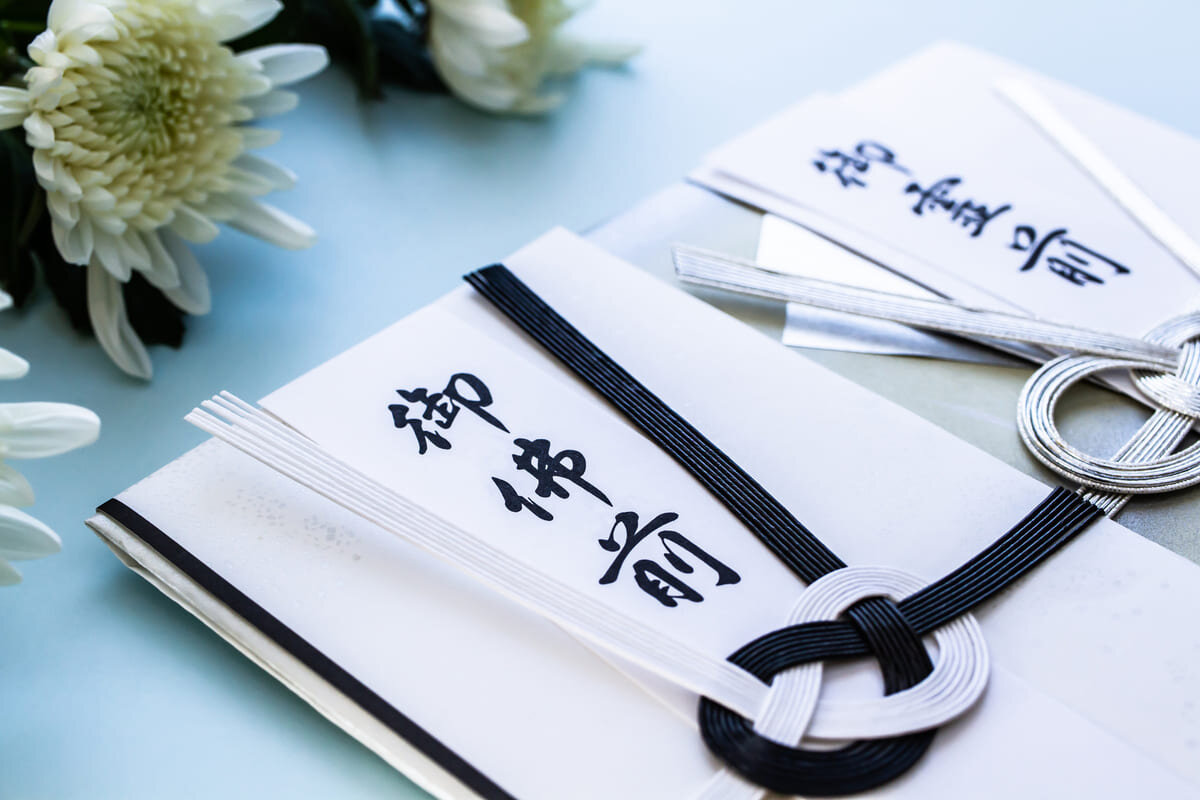 御佛前
御霊前